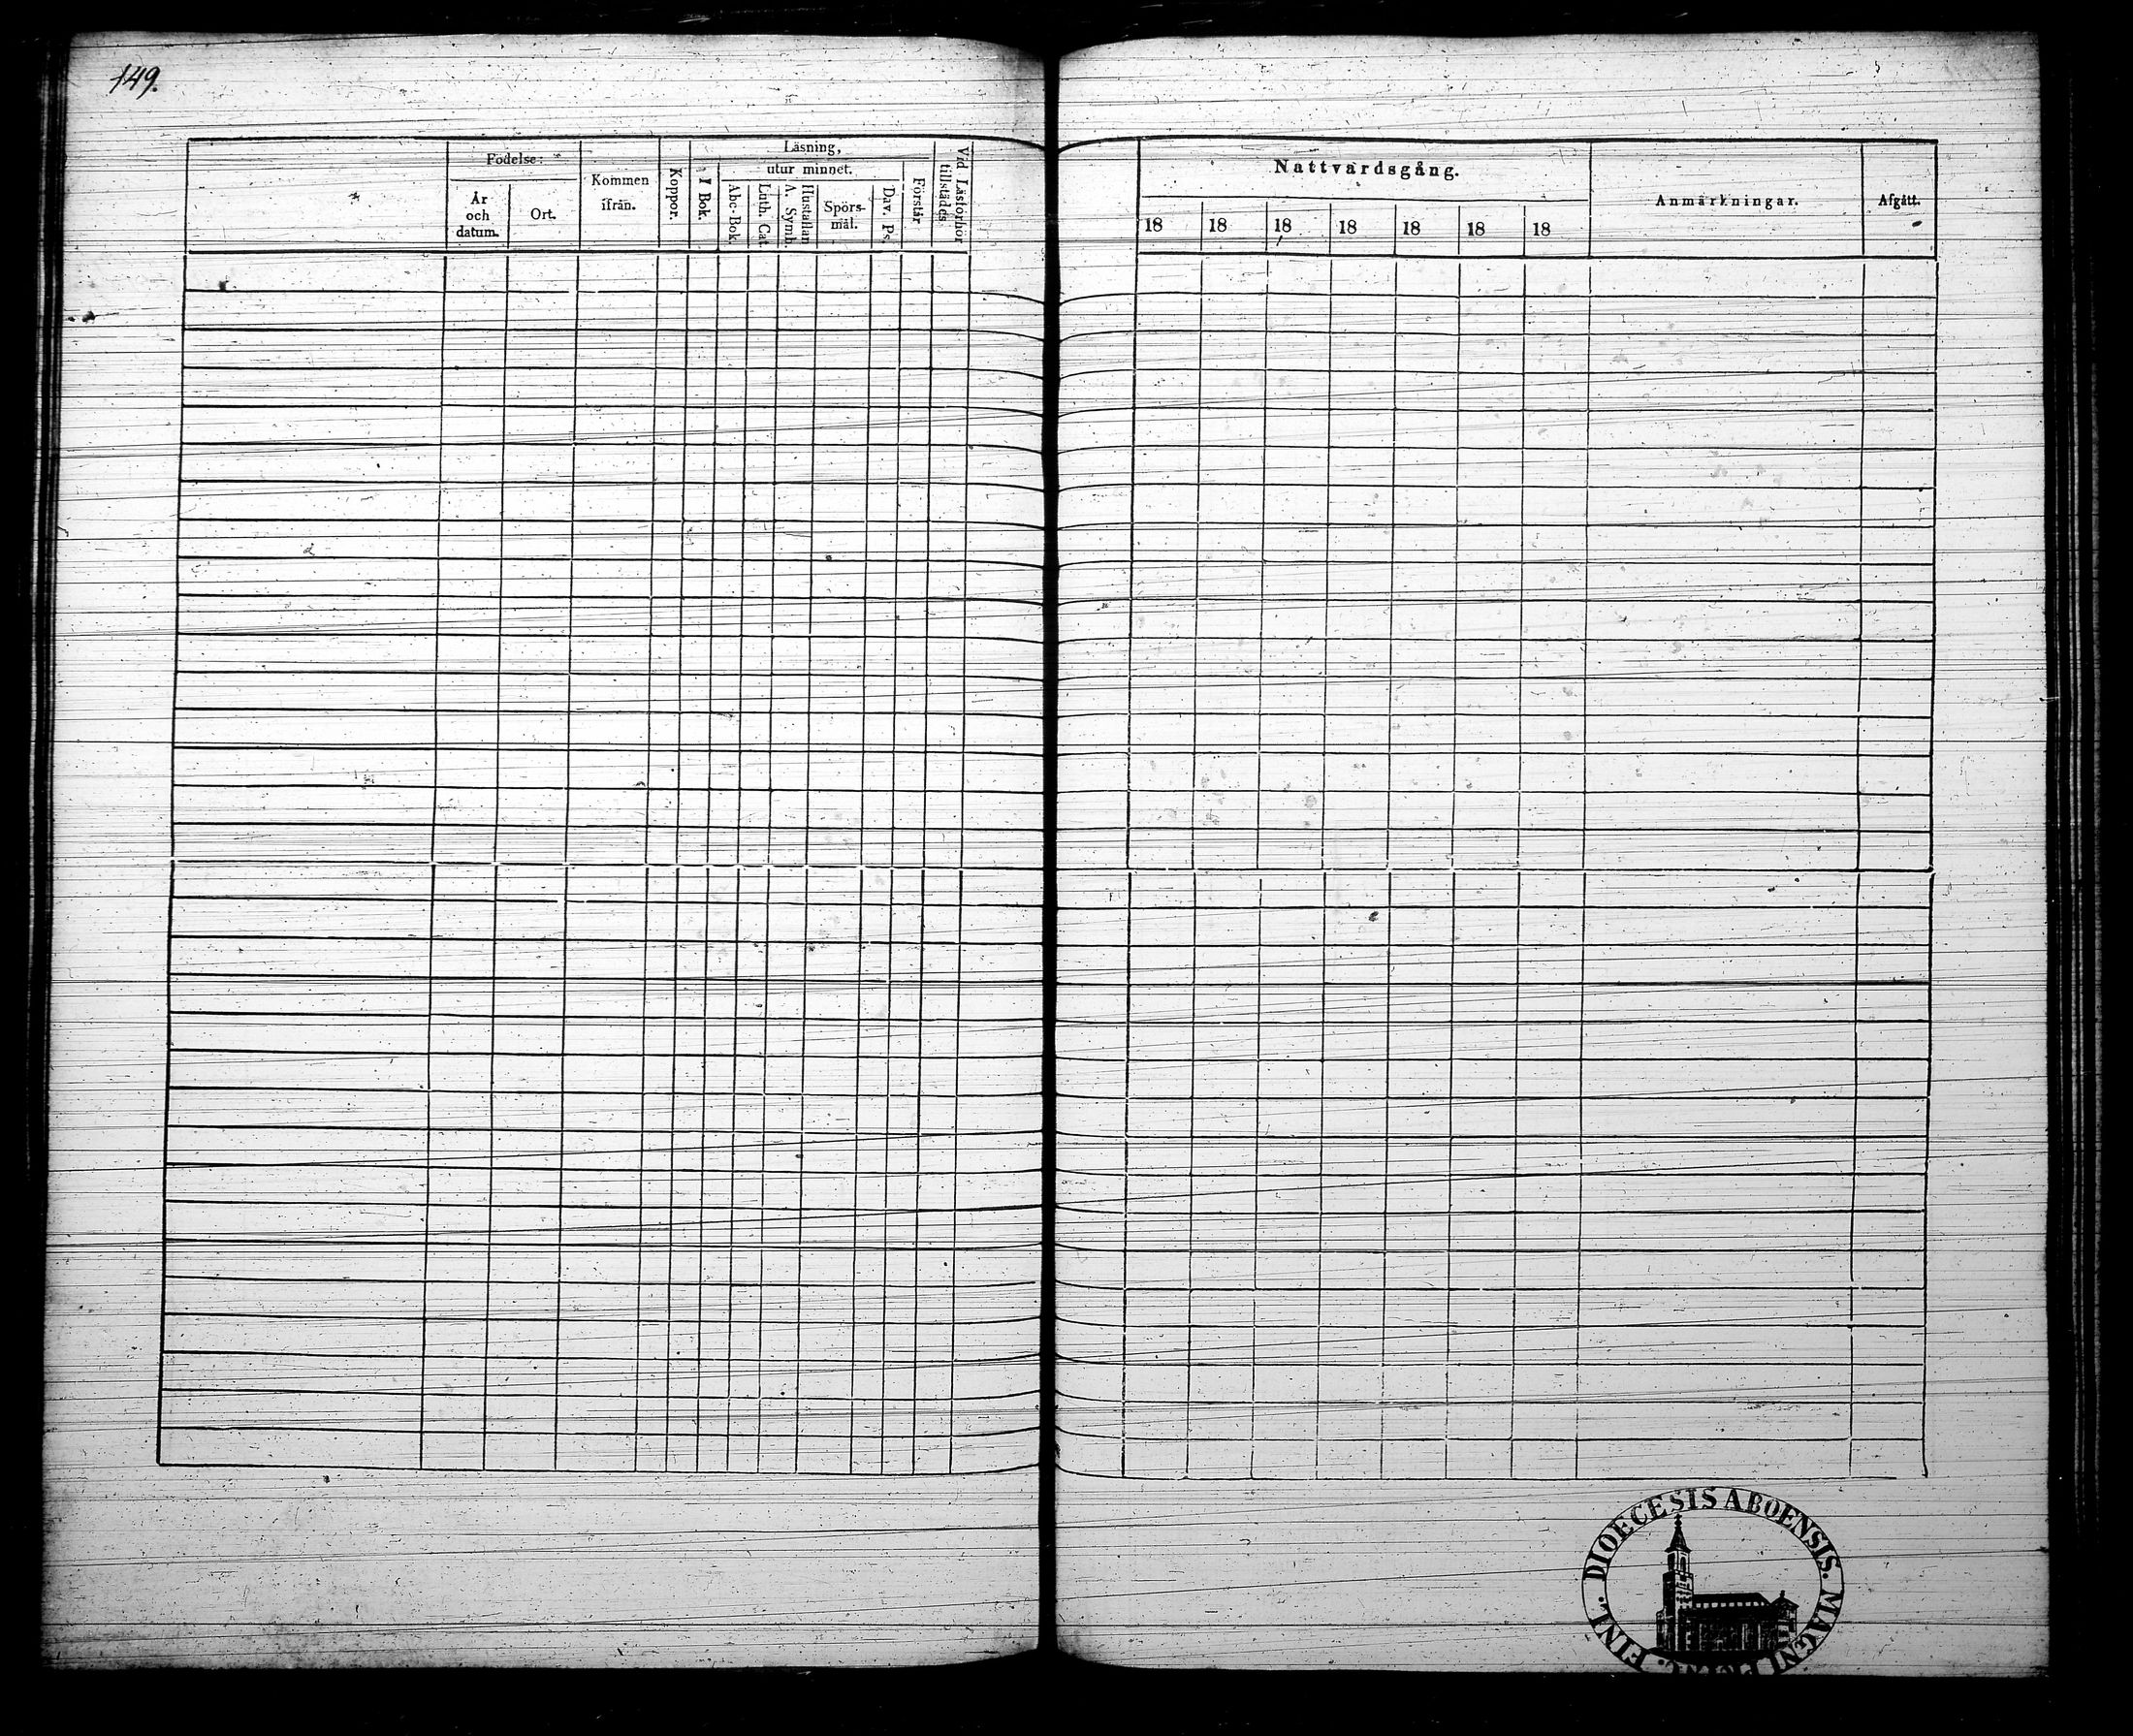 149.
Födelse:
År
och
datum.
Ort.
Kommen
ifrån.
Koppor.
Läsning,
I Bok.
utur minnet.
Abc-Bok.
Luth. Cat.
Hustaflan
A. Symb.
Spörs-
mål.
Dav. Ps.
Förstår
Vid Läsförhör
tillstädes
Nattvardsgång.
18 18 18 18 18 18 18
Anmärkningar.
Afgått.
DIOECESIS ABOENSIS. MAGNI FINL.